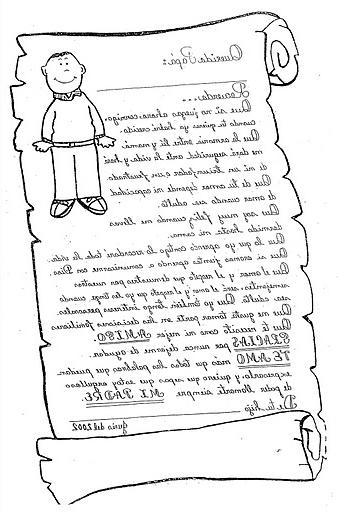 Querido Papá:
Recuerda...
Que si no juegas ahora conmigo,
cuando tu quieras ya habré crecido.
Que la armonía entre ti y mamá,
me dará seguridad ante la vida y hará
de mi un triunfador o un frustrado.
Que de tu amor depende mi capacidad
de amar cuando sea adulto.
Que soy muy feliz cuando me llevas
dormido hasta mi cama.
Que lo que yo aprenda contigo lo recordaré toda la vida.
Que si oramos juntos aprendo a comunicarme con Dios.
Que el amor y el respeto que demuestras por nuestros
semejantes será el amor y el respeto que yo les tenga cuando
sea adulto. Que yo también tengo intereses personales.
Que me gusta tomar parte en las decisiones familiares
Que te necesito como mi mejor AMIGO.
GRACIAS por nunca dejarme de ayudar.
TE AMO más que todas las palabras que puedan
expresarlo, y quiero que sepas que estoy orgulloso
de poder llamarte siempre MI PADRE.
De tu hijo
junio del 2,002